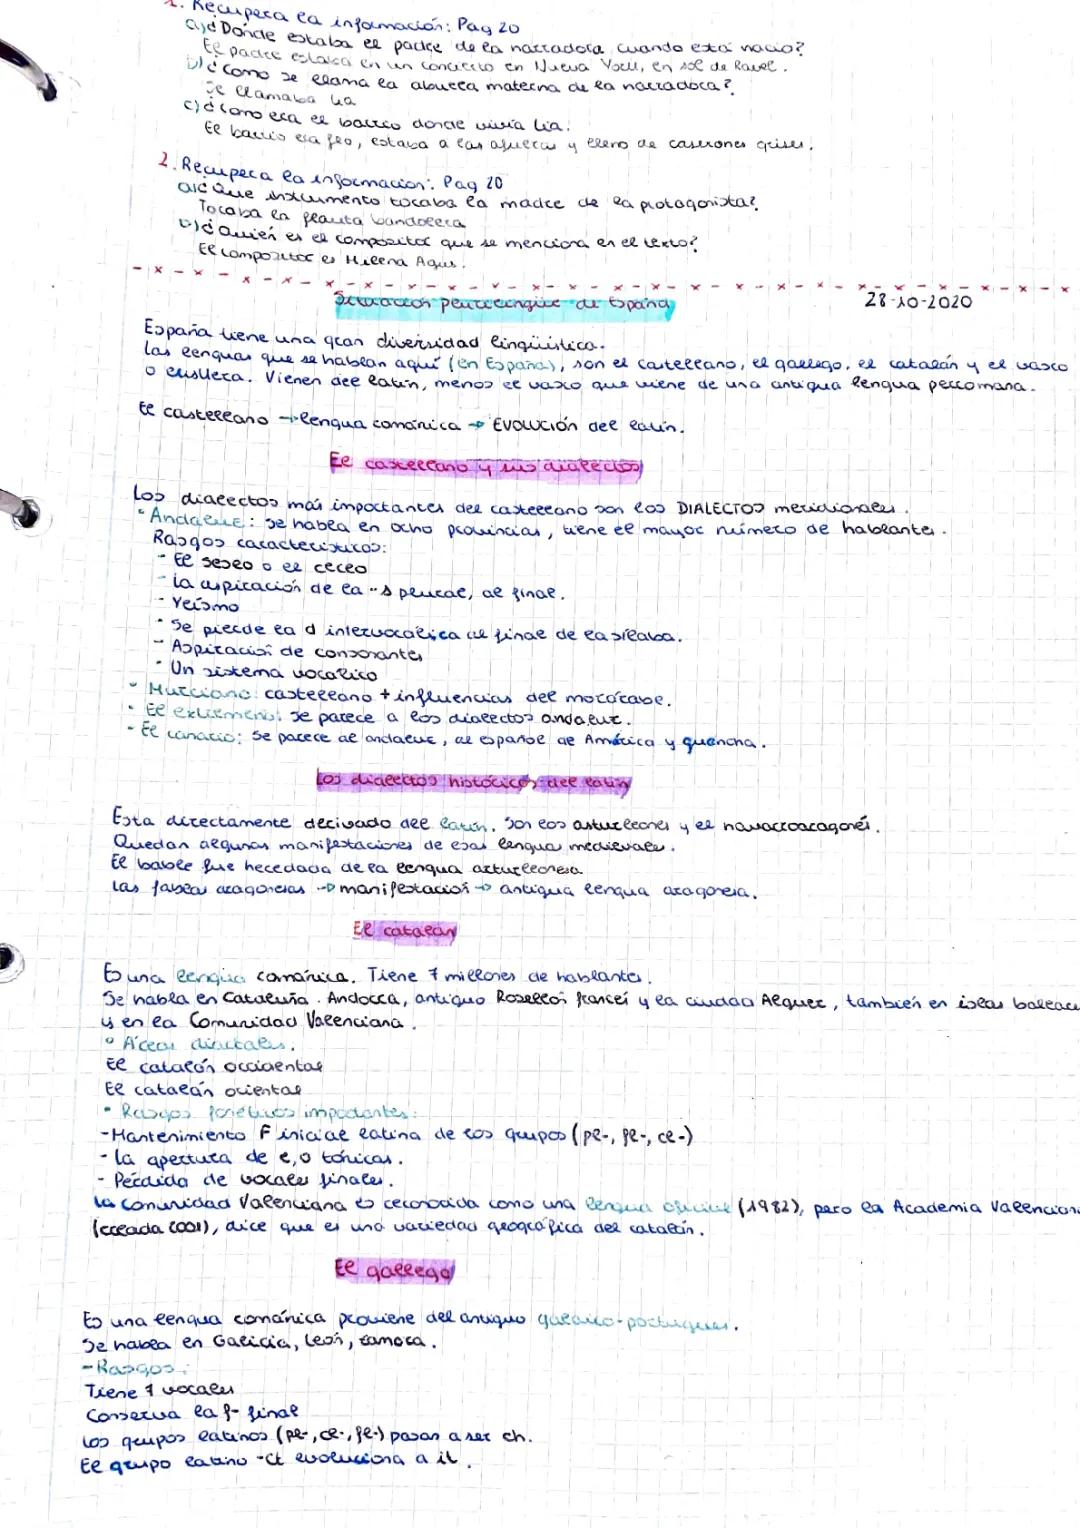 1. Recupera la información: Pag 20
a) ¿Dónde estaba el padre de la narradora cuando esta nació?
El padre estaba en un concierto en Nueva York, en sol de Ravel.
b) ¿Cómo se llama la abuela materna de la narradora?
Se llamaba Lia
c) ¿Cómo era el barrio donde vivía Lia?
El barrio era feo, estaba a las afueras y lleno de caserones grises.
2. Recupera la información: Pag 20
a) ¿Que instrumento tocaba la madre de la protagonista?
Tocaba la flauta bandolera
b) ¿Quién es el compositor que se menciona en el texto?
El compositor es Milena Agus.
Situación plurilingüe de España
28-10-2020
España tiene una gran diversidad lingüística.
Las lenguas que se hablan aquí (en España), son el castellano, el gallego, el catalán y el vasco
o euskera. Vienen del latín, menos el vasco que viene de una antigua lengua perromana.
El castellano → lengua románica → EVOLUCIÓN del latín.
El castellano y sus dialectos
Los dialectos más importantes del castellano son los DIALECTOS meridionales.
• Andaluz: Se habla en ocho provincias, tiene el mayor número de hablantes.
Rasgos característicos:
- El seseo o el ceceo
- La aspiración de la -s plural, al final.
- Yeísmo
- Se pierde la d intervocálica al final de la sílaba.
- Aspiración de consonantes
- Un sistema vocálico
• Murciano: castellano + influencias del mozárabe.
• El extremeño: se parece a los dialectos andaluz.
- El canario: Se parece al andaluz, al español de América y guancha.
Los dialectos históricos del latín
Esta directamente derivado del latín. Son los asturleones y el navarroaragonés.
Quedan algunas manifestaciones de esas lengua medievales.
El bable fue heredada de la lengua asturleonesa
Las fablas aragonesas → manifestación → antigua lengua aragonesa.
El catalán
Es una lengua románica. Tiene 7 millones de hablantes.
Se habla en Cataluña. Andorra, antiguo Rosellón francés y la ciudad Alguer, también en islas baleare
y en la Comunidad Valenciana.
• Áreas dialectales.
El catalán occidental
El catalán oriental
• Rasgos fonéticos importantes:
- Mantenimiento F inicial latina de los grupos (pl-, fl-, cl-)
- La apertura de e, o tónicas.
- Pérdida de vocales finales.
La Comunidad Valenciana es reconocida como una lengua oficial (1982), pero la Academia Valenciana
(creada 2001), dice que es una variedad geográfica del catalán.
El gallego
Es una lengua románica proviene del antiguo galaico-portugues.
Se habla en Galicia, León, Zamora.
- Rasgos:
Tiene 7 vocales
Conserva la f- final
Los grupos latinos (pl-, cl-, fl-) pasan a ser ch.
El grupo latino -ct evoluciona a it.